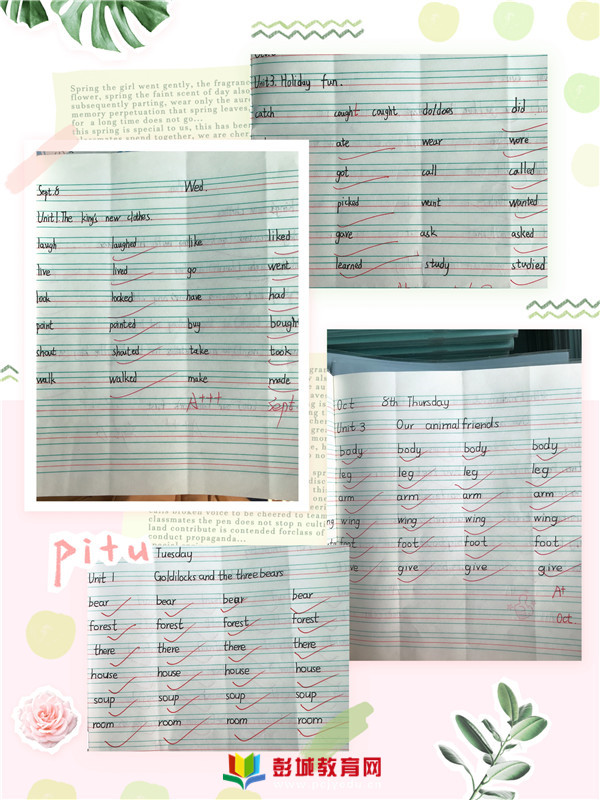 Spring the girl went gently, the fragrance
flower, spring the faint scent of day also
subsequently parting, wear only the
memory perpetuation that spring leaves,
for a long time does not go...
this spring is special to us, this has been
spend together, we are
Unit3. Holiday fun.
catch caught caught do/does did
ate wear wore
got call called
picked want wanted
gave ask asked
learned study studied
Sept. 6 Wed.
Unit1. The king's new clothes.
laugh laughed like liked
live lived go went
look looked have had
point pointed buy bought
shout shouted take took
walk walked make made
A+++ Sept
Oct 8th Thursday
Unit. 3 Our animal friends
body body body body
leg leg leg leg
arm arm arm arm
wing wing wing wing
foot foot foot foot
give give give
A+
Oct.
broken voice to be cheered to team
classmates the pen does not stop n
land contribute is contended forclass of
conduct propaganda...
pitu
Tuesday
Unit 1 Goldilocks and the three bears
bear bear bear bear
forest forest forest forest
there there there there
house house house house
soup soup soup soup
room room room room
彭城教育网